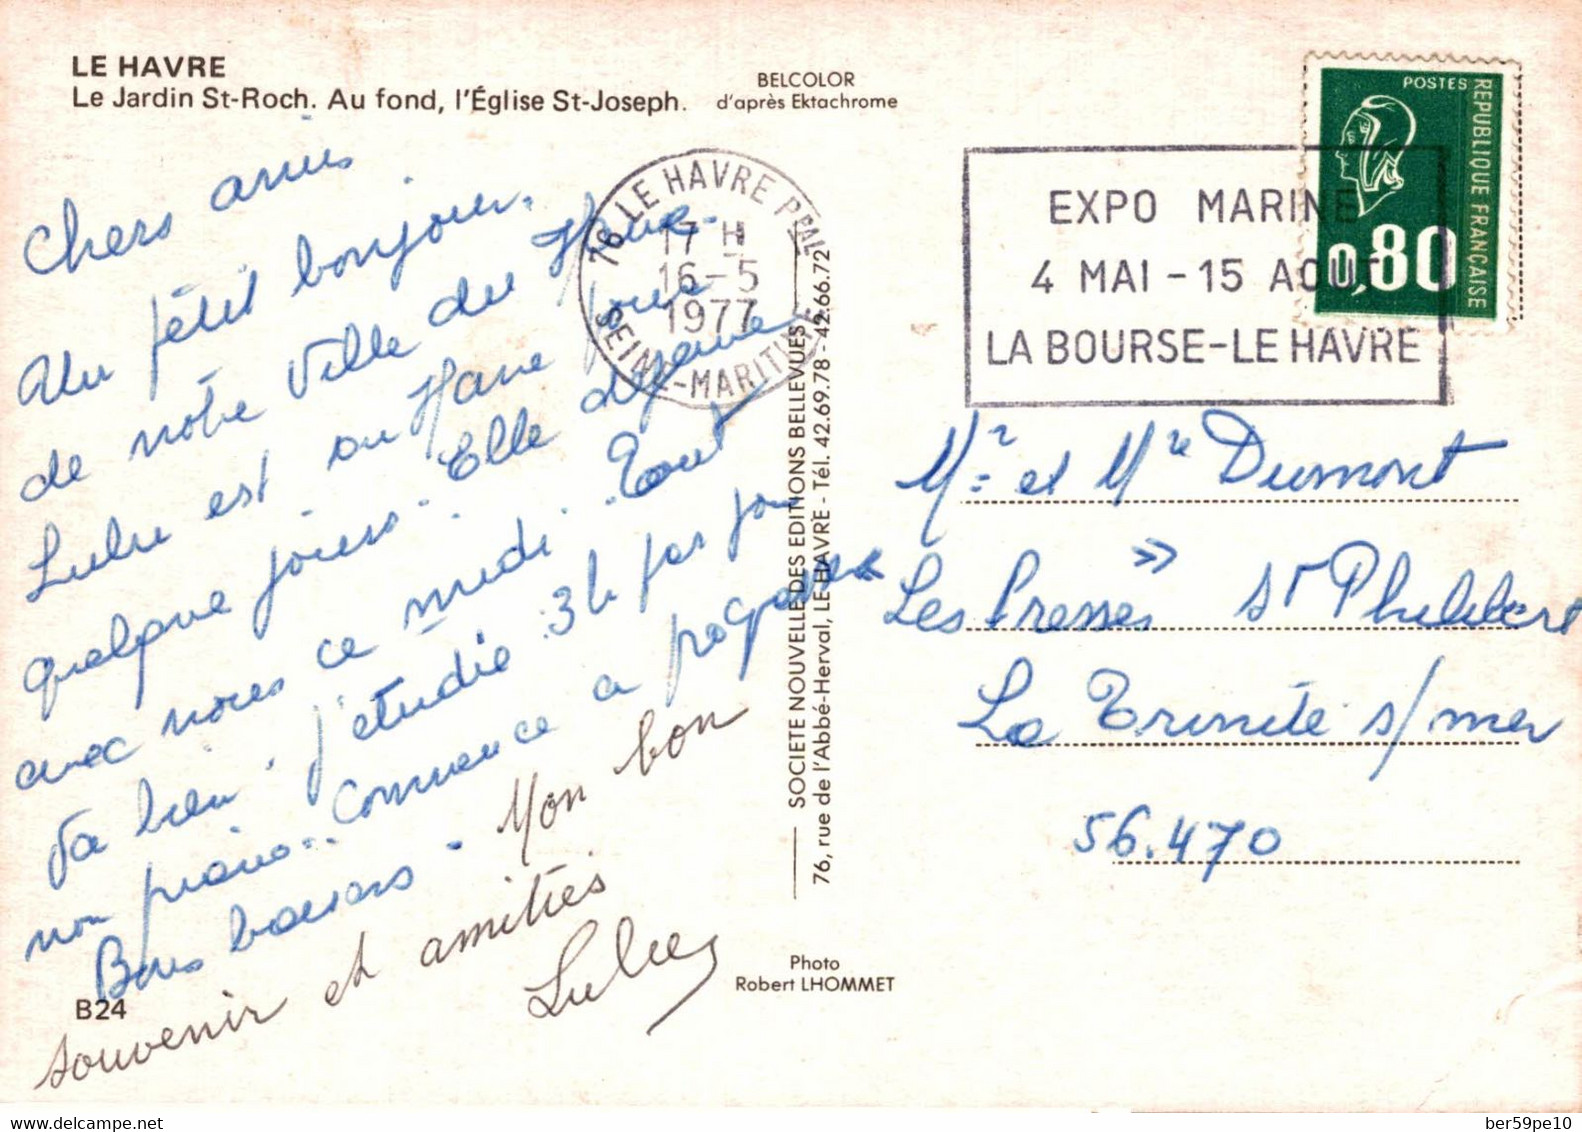 LE HAVRE
Le Jardin St-Roch. Au fond, l'Église St-Joseph.
BELCOLOR
d'après Ektachrome
Chers amis
Un petit bonjour.
de notre Ville du Havre.
Lulu est au Havre pour
quelque jours. Elle déjeune
avec nous ce midi. Tout
Va bien. j'etudie 3h par jour
mon piano.. commence a progresser
Bons baisers. Mon bon
souvenir et amitiés
Lulu
B24
76 LE HAVRE PPAL
17 H
16-5
1977
SEINE-MARITIME
SOCIETE NOUVELLE DES EDITIONS BELLEVUES
76, rue de l'Abbé-Herval, LE HAVRE - Tél. 42.69.78 - 42.66.72
Photo
Robert LHOMMET
POSTES
REPUBLIQUE FRANÇAISE
0,80
EXPO MARINE
4 MAI - 15 AOUT
LA BOURSE-LE HAVRE
Mr et Me Dumont
"Les Presses" St Philibert
La Trinité s/mer
56.470
delcampe.net
ber59pe10